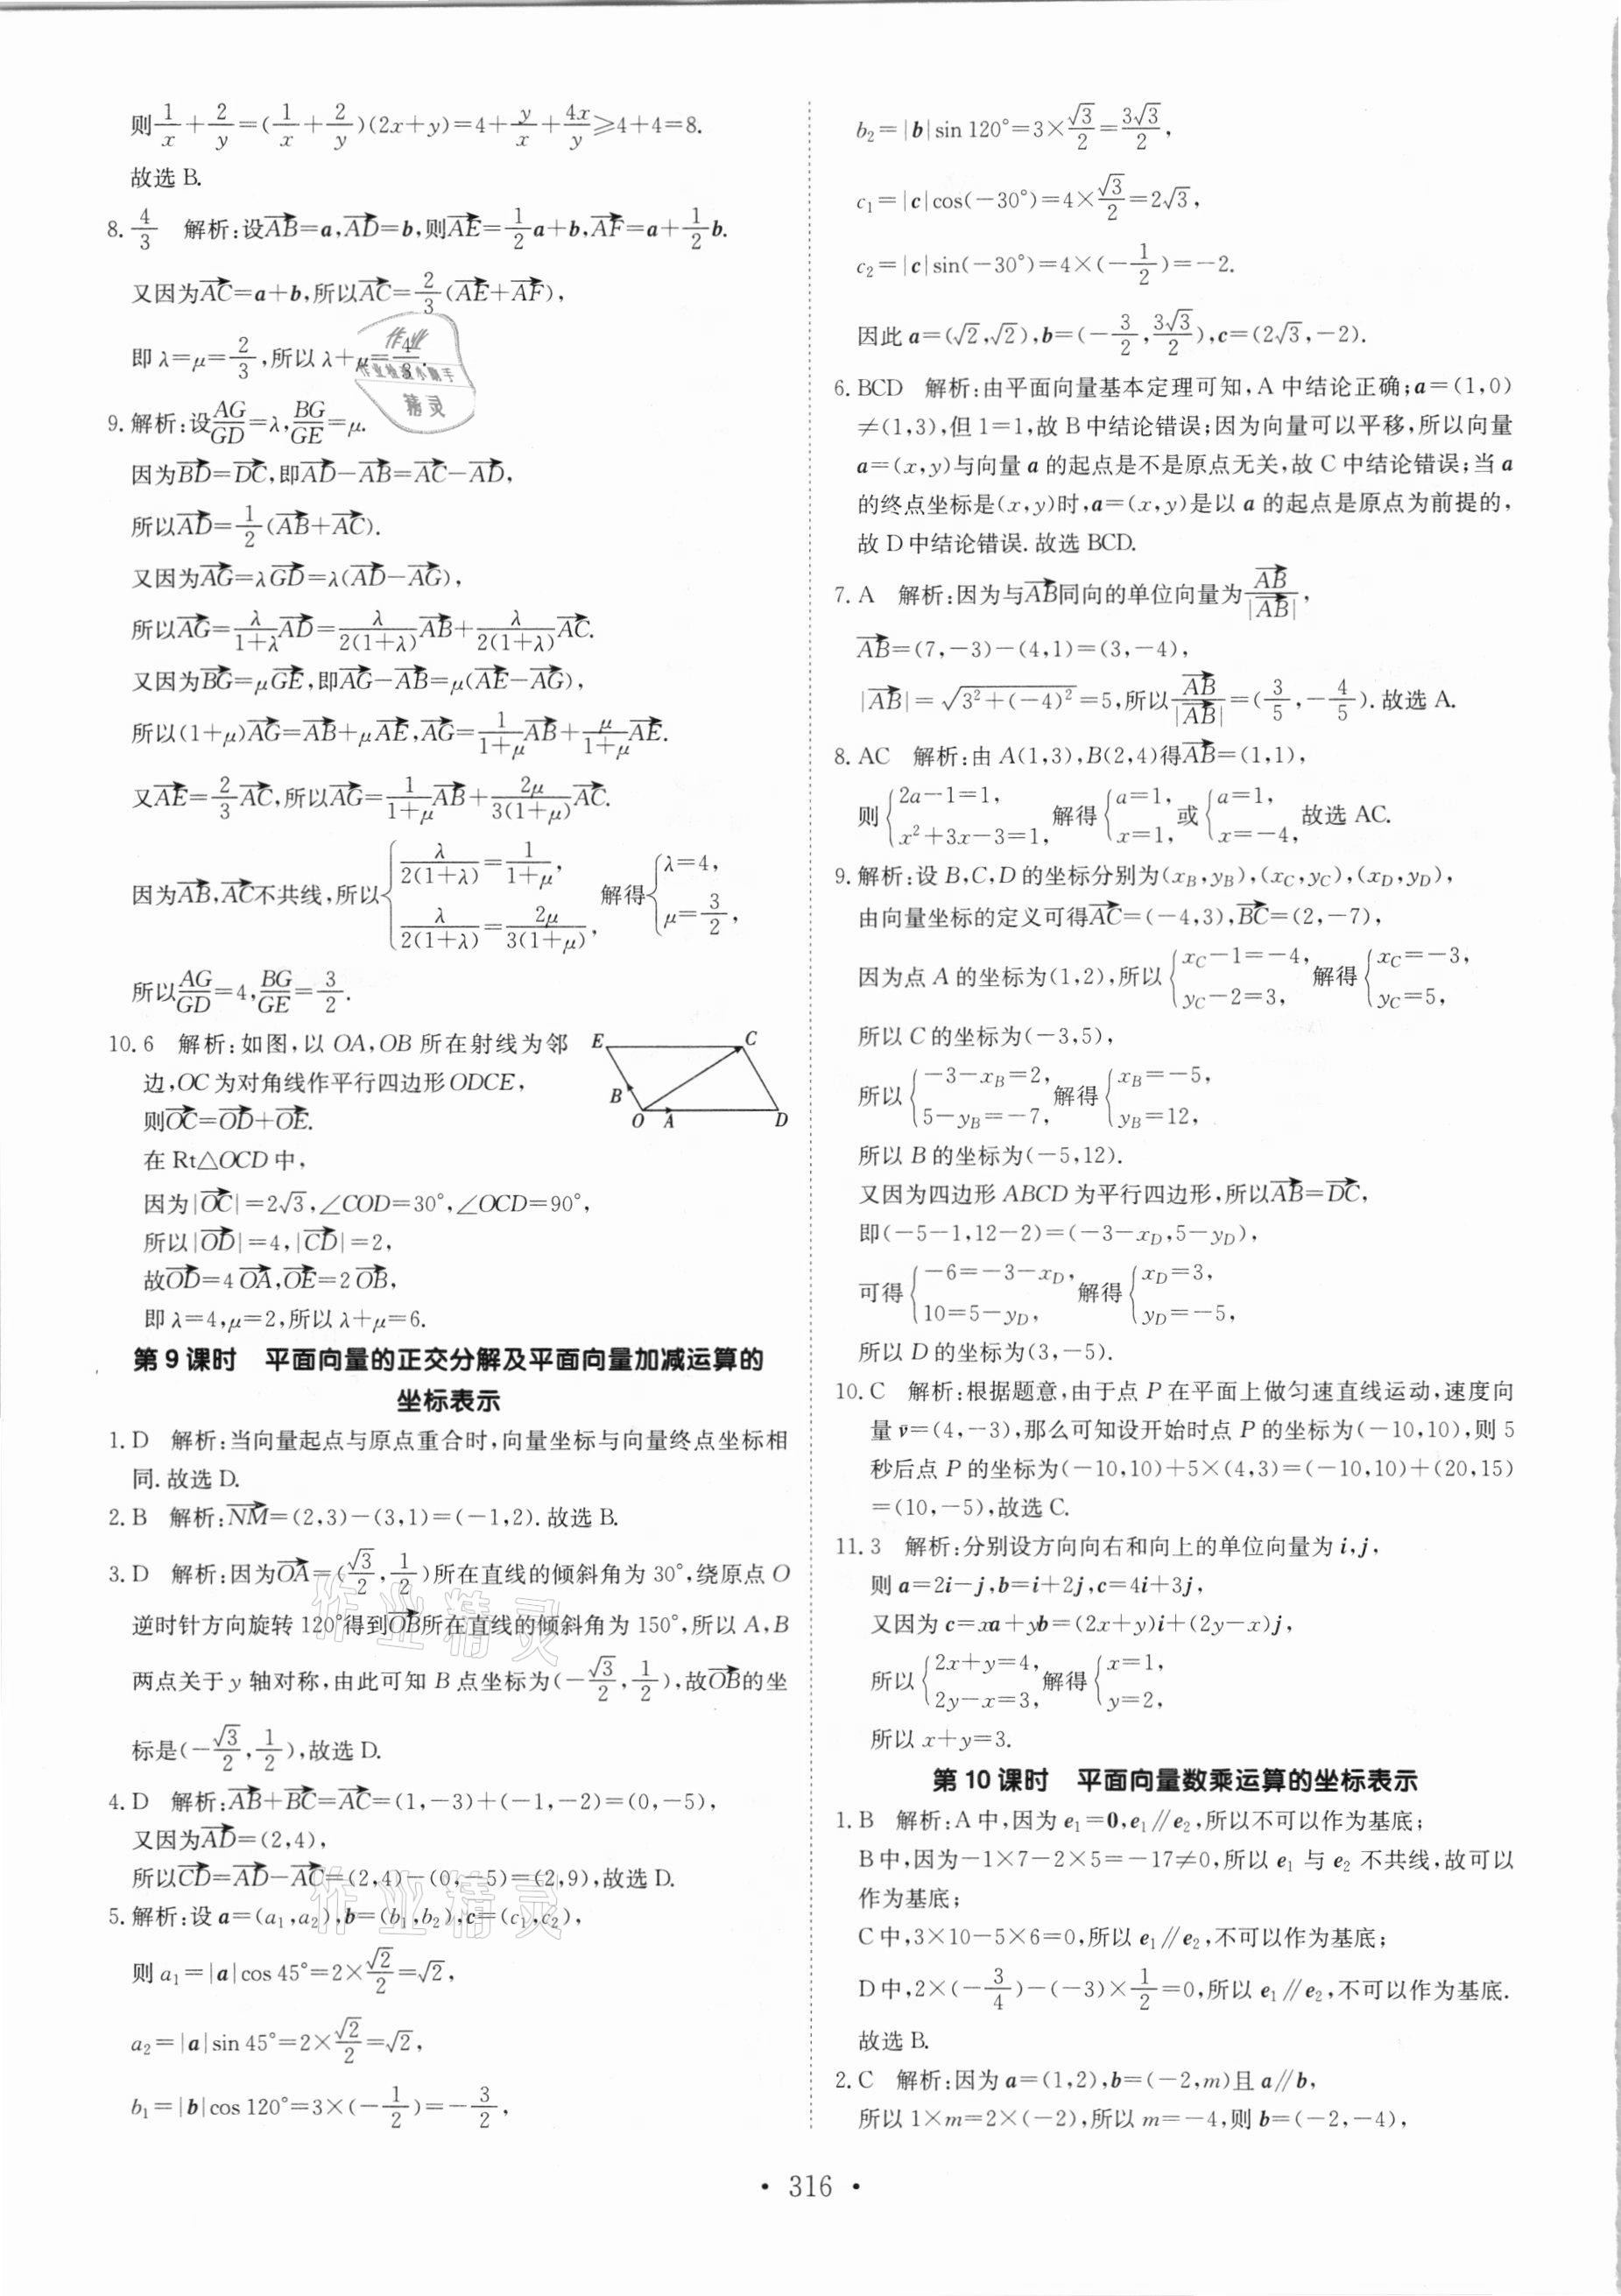 则1/x+2/y=(1/x+2/y)(2x+y)=4+y/x+4x/y≥4+4=8.
故选 B.
8. 4/3 解析:设AB→=a,AD→=b,则AE→=1/2a+b,AF→=a+1/2b.
又因为AC→=a+b,所以AC→=2/3(AE→+AF→),
即 λ=μ=2/3,所以 λ+μ=4/3.
9. 解析:设AG/GD=λ,BG/GE=μ.
因为BD→=DC→,即AD→-AB→=AC→-AD→,
所以AD→=1/2(AB→+AC→).
又因为AG→=λGD→=λ(AD→-AG→),
所以AG→=λ/(1+λ)AD→=λ/(2(1+λ))AB→+λ/(2(1+λ))AC→.
又因为BG→=μGE→,即AG→-AB→=μ(AE→-AG→),
所以(1+μ)AG→=AB→+μAE→,AG→=1/(1+μ)AB→+μ/(1+μ)AE→.
又AE→=2/3AC→,所以AG→=1/(1+μ)AB→+2μ/(3(1+μ))AC→.
因为AB→,AC→不共线,所以{λ/(2(1+λ))=1/(1+μ), λ/(2(1+λ))=2μ/(3(1+μ)), 解得{λ=4, μ=3/2,
所以AG/GD=4,BG/GE=3/2.
10. 6 解析:如图,以 OA,OB 所在射线为邻
边,OC 为对角线作平行四边形 ODCE,
则OC→=OD→+OE→.
在 Rt△OCD 中,
因为|OC→|=2√3,∠COD=30°,∠OCD=90°,
所以|OD→|=4,|CD→|=2,
故OD→=4OA→,OE→=2OB→,
即 λ=4,μ=2,所以 λ+μ=6.
E C
B
O A D
第 9 课时 平面向量的正交分解及平面向量加减运算的
坐标表示
1. D 解析:当向量起点与原点重合时,向量坐标与向量终点坐标相
同. 故选 D.
2. B 解析:NM→=(2,3)-(3,1)=(-1,2). 故选 B.
3. D 解析:因为OA→=(√3/2,1/2)所在直线的倾斜角为 30°,绕原点 O
逆时针方向旋转 120°得到OB→所在直线的倾斜角为 150°,所以 A,B
两点关于 y 轴对称,由此可知 B 点坐标为(-√3/2,1/2),故OB→的坐
标是(-√3/2,1/2),故选 D.
4. D 解析:AB→+BC→=AC→=(1,-3)+(-1,-2)=(0,-5),
又因为AD→=(2,4),
所以CD→=AD→-AC→=(2,4)-(0,-5)=(2,9),故选 D.
5. 解析:设 a=(a₁,a₂),b=(b₁,b₂),c=(c₁,c₂),
则 a₁=|a|cos 45°=2×√2/2=√2,
a₂=|a|sin 45°=2×√2/2=√2,
b₁=|b|cos 120°=3×(-1/2)=-3/2,
b₂=|b|sin 120°=3×√3/2=3√3/2,
c₁=|c|cos(-30°)=4×√3/2=2√3,
c₂=|c|sin(-30°)=4×(-1/2)=-2.
因此 a=(√2,√2),b=(-3/2,3√3/2),c=(2√3,-2).
6. BCD 解析:由平面向量基本定理可知,A 中结论正确;a=(1,0)
≠(1,3),但 1=1,故 B 中结论错误;因为向量可以平移,所以向量
a=(x,y)与向量 a 的起点是不是原点无关,故 C 中结论错误;当 a
的终点坐标是(x,y)时,a=(x,y)是以 a 的起点是原点为前提的,
故 D 中结论错误. 故选 BCD.
7. A 解析:因为与AB→同向的单位向量为AB→/|AB→|,
AB→=(7,-3)-(4,1)=(3,-4),
|AB→|=√(3²+(-4)²)=5,所以AB→/|AB→|=(3/5,-4/5). 故选 A.
8. AC 解析:由 A(1,3),B(2,4)得AB→=(1,1),
则{2a-1=1, x²+3x-3=1, 解得{a=1, x=1, 或{a=1, x=-4, 故选 AC.
9. 解析:设 B,C,D 的坐标分别为(x_B,y_B),(x_C,y_C),(x_D,y_D),
由向量坐标的定义可得AC→=(-4,3),BC→=(2,-7),
因为点 A 的坐标为(1,2),所以{x_C-1=-4, y_C-2=3, 解得{x_C=-3, y_C=5,
所以 C 的坐标为(-3,5),
所以{-3-x_B=2, 5-y_B=-7, 解得{x_B=-5, y_B=12,
所以 B 的坐标为(-5,12).
又因为四边形 ABCD 为平行四边形,所以AB→=DC→,
即(-5-1,12-2)=(-3-x_D,5-y_D),
可得{-6=-3-x_D, 10=5-y_D, 解得{x_D=3, y_D=-5,
所以 D 的坐标为(3,-5).
10. C 解析:根据题意,由于点 P 在平面上做匀速直线运动,速度向
量 v=(4,-3),那么可知设开始时点 P 的坐标为(-10,10),则 5
秒后点 P 的坐标为(-10,10)+5×(4,3)=(-10,10)+(20,15)
=(10,-5),故选 C.
11. 3 解析:分别设方向向右和向上的单位向量为 i,j,
则 a=2i-j,b=i+2j,c=4i+3j,
又因为 c=xa+yb=(2x+y)i+(2y-x)j,
所以{2x+y=4, 2y-x=3, 解得{x=1, y=2,
所以 x+y=3.
第 10 课时 平面向量数乘运算的坐标表示
1. B 解析:A 中,因为 e₁=0,e₁∥e₂,所以不可以作为基底;
B 中,因为-1×7-2×5=-17≠0,所以 e₁ 与 e₂ 不共线,故可以
作为基底;
C 中,3×10-5×6=0,所以 e₁∥e₂,不可以作为基底;
D 中,2×(-3/4)-(-3)×1/2=0,所以 e₁∥e₂,不可以作为基底.
故选 B.
2. C 解析:因为 a=(1,2),b=(-2,m)且 a∥b,
所以 1×m=2×(-2),所以 m=-4,则 b=(-2,-4),
· 316 ·
作业
作业检查小助手
精灵
作业精灵
作业精灵